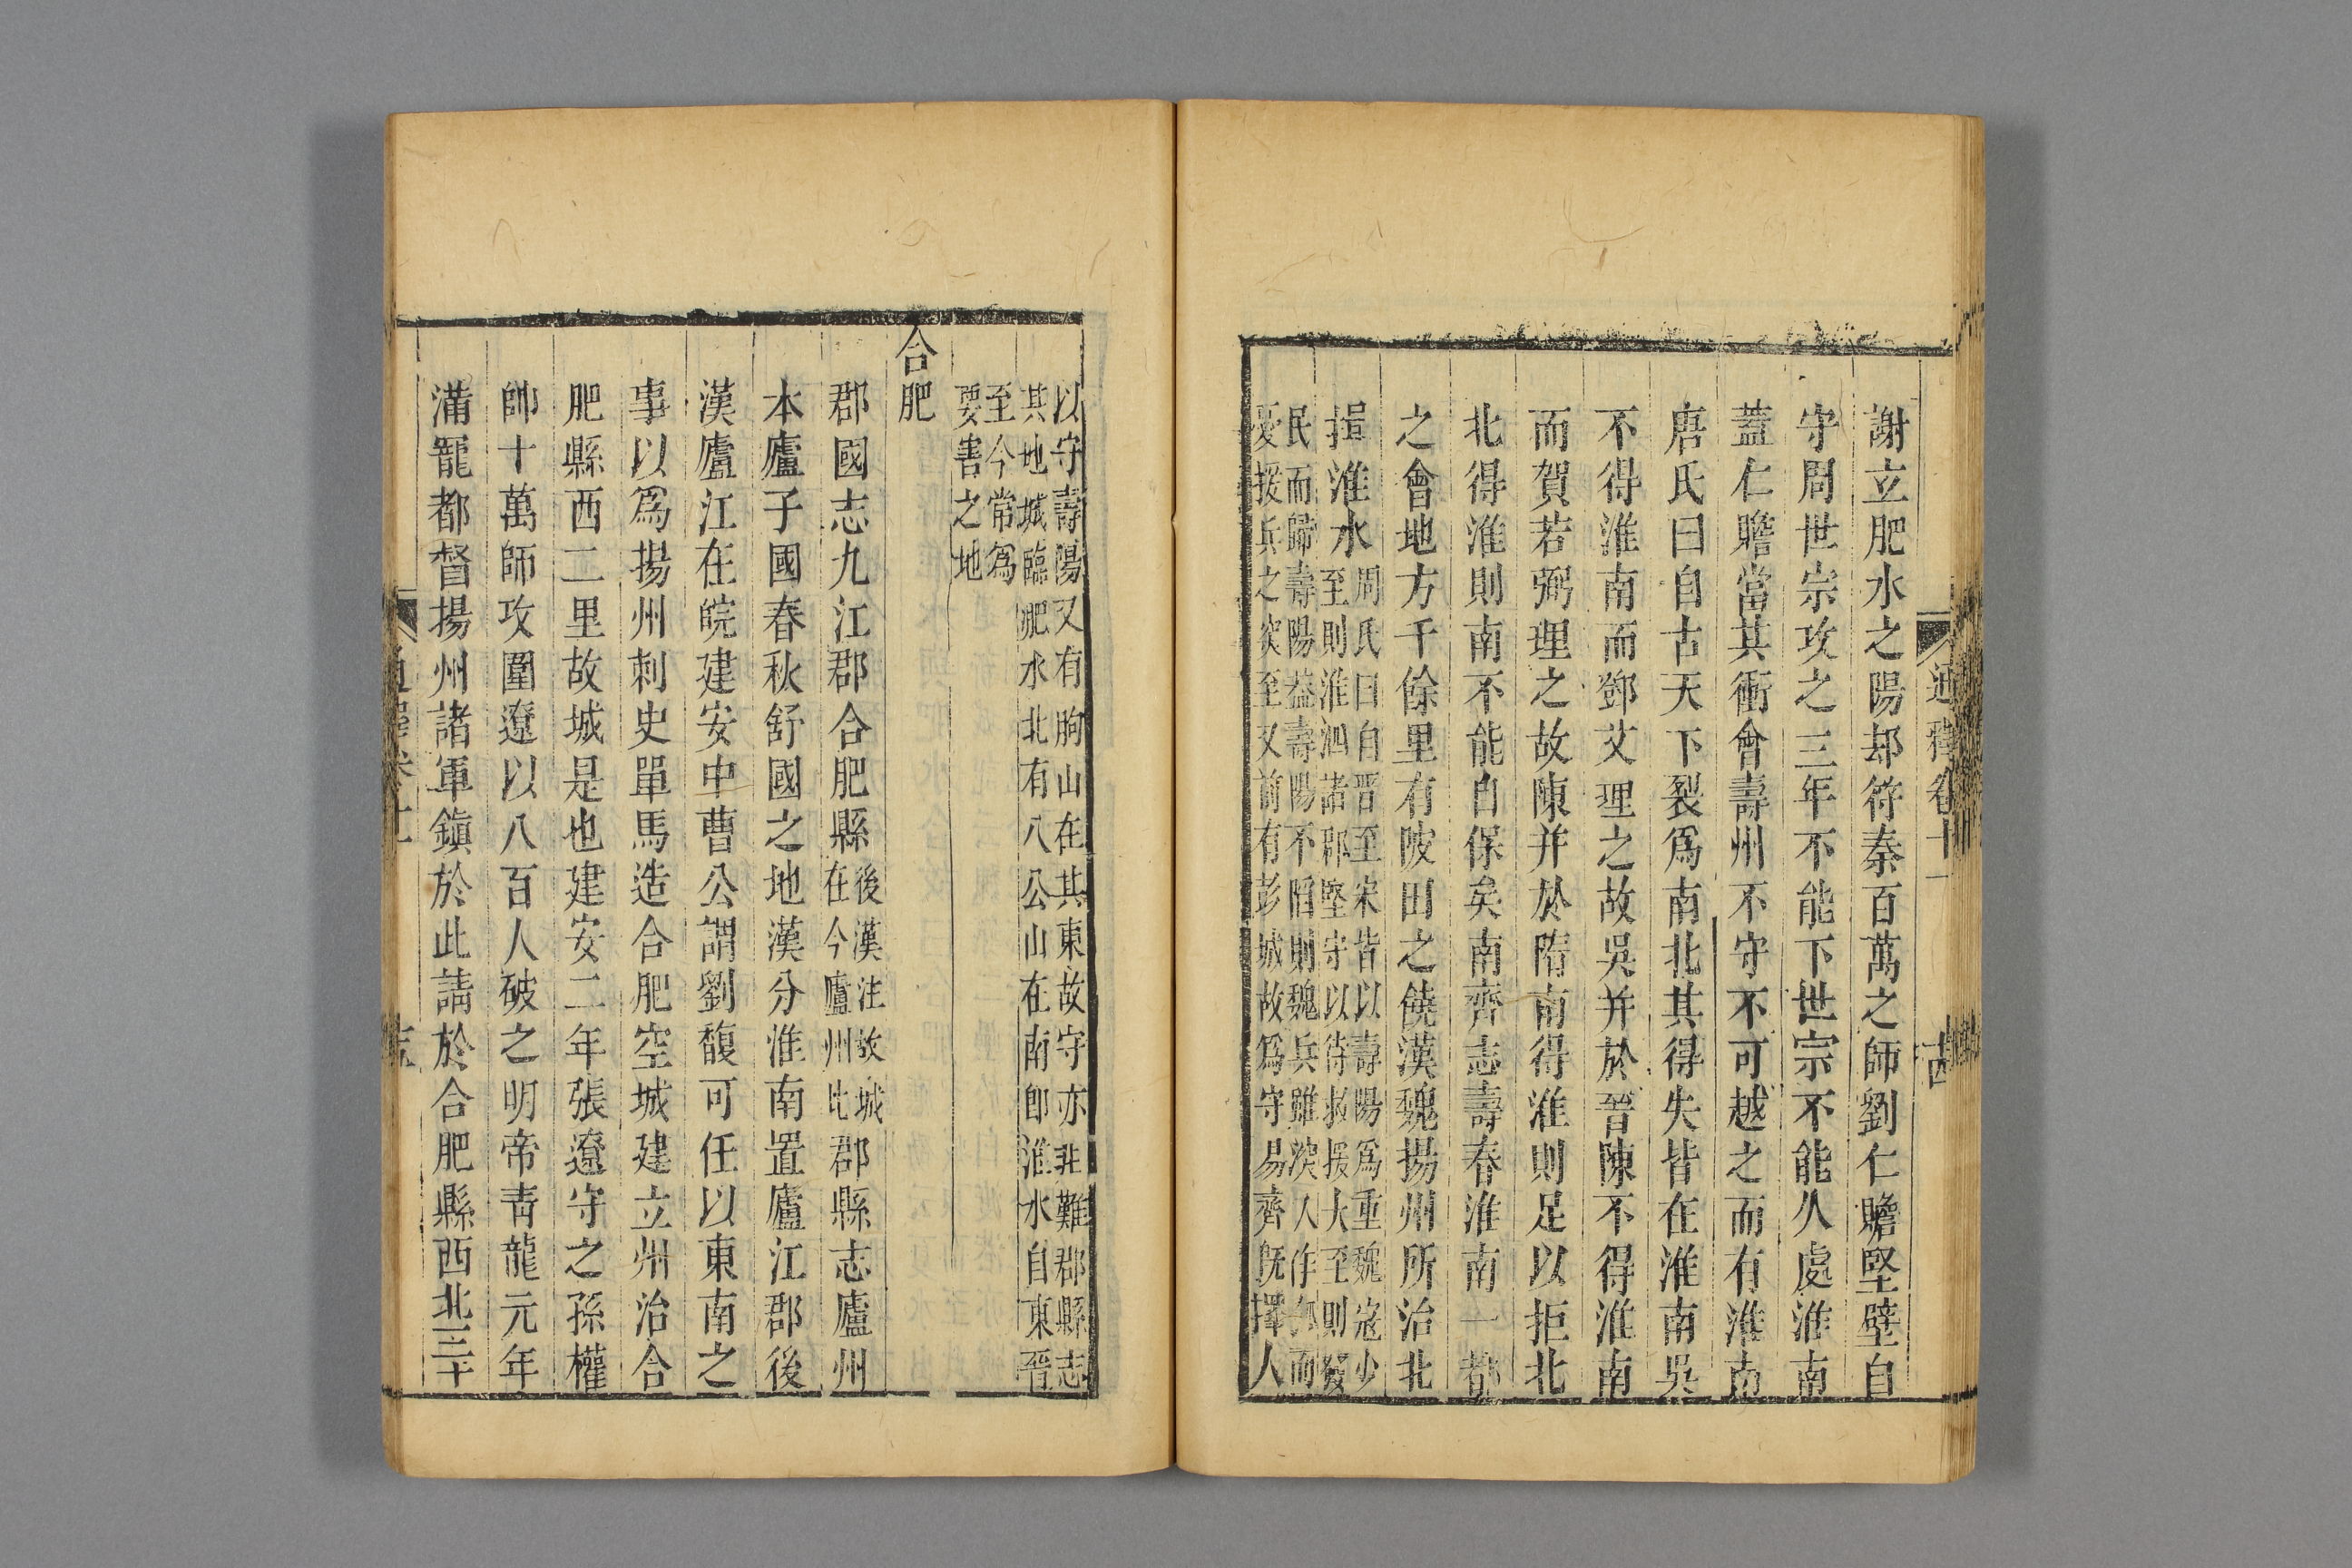 通釋卷十一
謝立肥水之陽却符秦百萬之師劉仁贍堅壁自
守周世宗攻之三年不能下世宗不能久處淮南
蓋仁贍當其衝會壽州不守不可越之而有淮南
唐氏曰自古天下裂爲南北其得失皆在淮南吳
不得淮南而鄧艾理之故吳并於晉陳不得淮南
而賀若弼理之故陳并於隋南得淮則足以拒北
北得淮則南不能自保矣南齊志壽春淮南一都
之會地方千餘里有陂田之饒漢魏揚州所治北
揖淮水
周氏曰自晉至宋皆以壽陽爲重魏寇少
至則淮泗諸郡堅守以待救援大至則發
民而歸壽陽蓋壽陽不陷則魏兵雖深入作郡而
憂援兵之深至又前有彭城故爲守易齊既擇人
以守壽陽又有朐山在其東故守亦非難郡縣志
其地城臨肥水北有八公山在南卽淮水自東晉
至今常爲
要害之地
合肥
郡國志九江郡合肥縣
後漢注故城
在今廬州北
郡縣志廬州
本廬子國春秋舒國之地漢分淮南置廬江郡後
漢廬江在皖建安中曹公謂劉馥可任以東南之
事以爲揚州刺史單馬造合肥空城建立州治合
肥縣西二里故城是也建安二年張遼守之孫權
帥十萬師攻圍遼以八百人破之明帝青龍元年
滿寵都督揚州諸軍鎮於此請於合肥縣西北三十